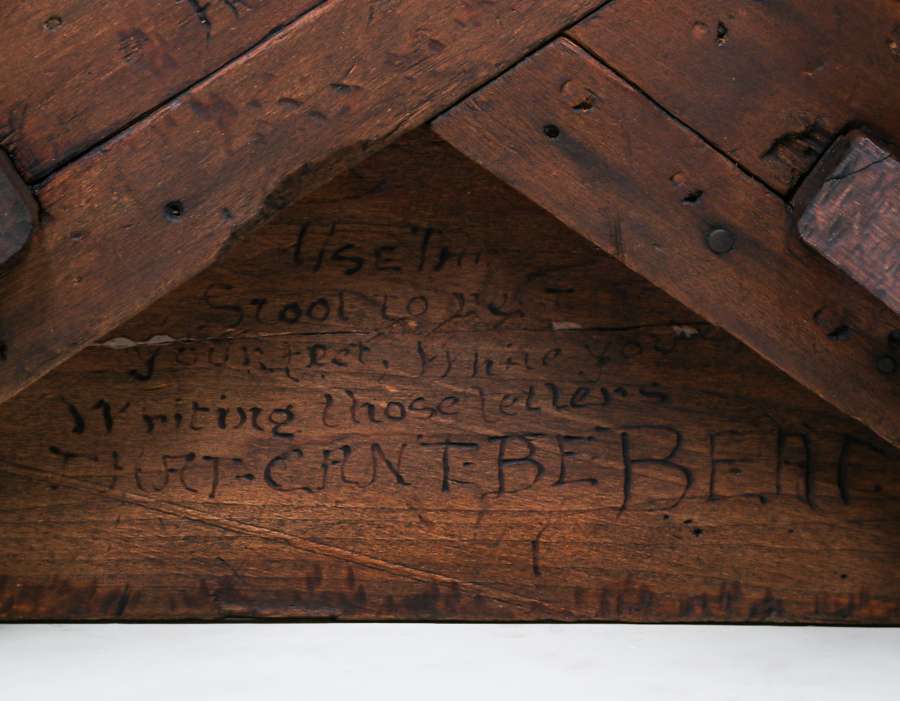 Use This
Stool to rest
your feet, While you
Writing those letters
THAT-CAN'T-BE BEAT